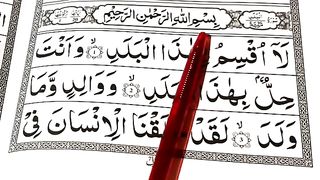 بِسْمِ اللّٰهِ الرَّحْمٰنِ الرَّحِيْمِ
لَآ اُقْسِمُ الْبَلَدِ ۙ﴿۱﴾ وَاَنْتَ
حِلٌّۢ بِهٰذَا ۙ﴿۲﴾ وَوَالِدٍ وَّمَا
وَلَدَ ۙ﴿۳﴾ لَقَدْ الْاِنْسَانَ فِيْ